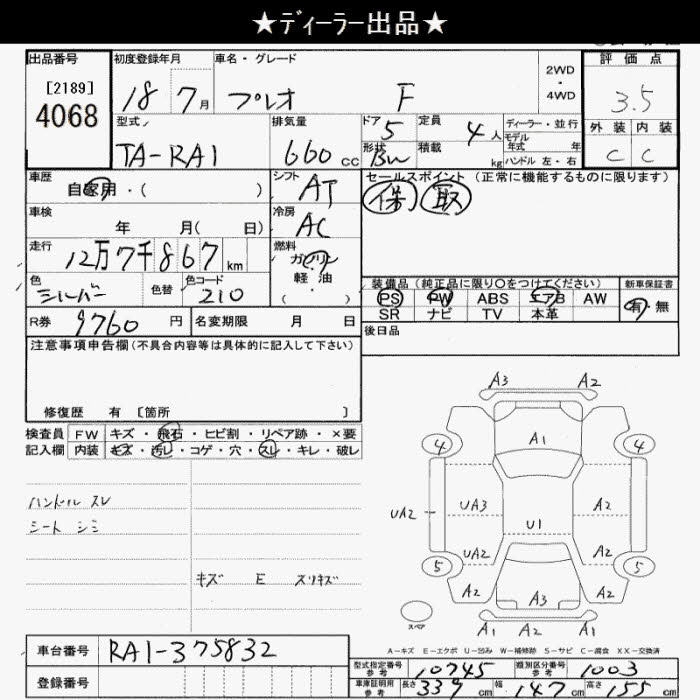 ★ディーラー出品★
出品番号 初度登録年月 車名・グレード 評価点
[2189] 2WD
4068 18 7月 プレオ F ・ 3.5
4WD
型式 排気量 ドア 定員 ディーラー・並行 外装 内装
TA-RA1 660cc 5 4人 モデル年式 年 C C
形状 積載
BW kg ハンドル 左・右
車歴 シフト セールスポイント(正常に機能するものに限ります)
自家用・( ) AT 保 取
車検 冷房
年 月( 日) AC
走行 燃料
12万7千867km ガソリン
色 色替 色コード 軽・油
シルバー 210 ・( )
装備品(純正品に限り○をつけてください) 新車保証書
PS PW ABS エアB AW 有・無
SR ナビ TV 本革
R券 9760円 名変期限 月 日 後日品
注意事項申告欄(不具合内容等は具体的に記入して下さい)
修復歴 有 [箇所 ]
検査員 FW キズ・飛石・ヒビ割・リペア跡・×要
記入欄 内装 キズ・汚レ・コゲ・穴・スレ・キレ・破レ
ハンドル スレ
シート シミ
キズ E スリキズ
A3 A2
4 A1 4
UA2 UA3 A2
U1
UA2 A2
5 5
A2 A3 A2
スペア A1 A1 A2
A-キズ E-エクボ U-凹み W-補修跡 S-サビ C-腐食 XX-交換済
車台番号 RA1-375832
登録番号
型式指定番号 参考 10745 類別区分番号 参考 1003
車庫証明用 参考 長さ 339cm 幅 147cm 高さ 155cm